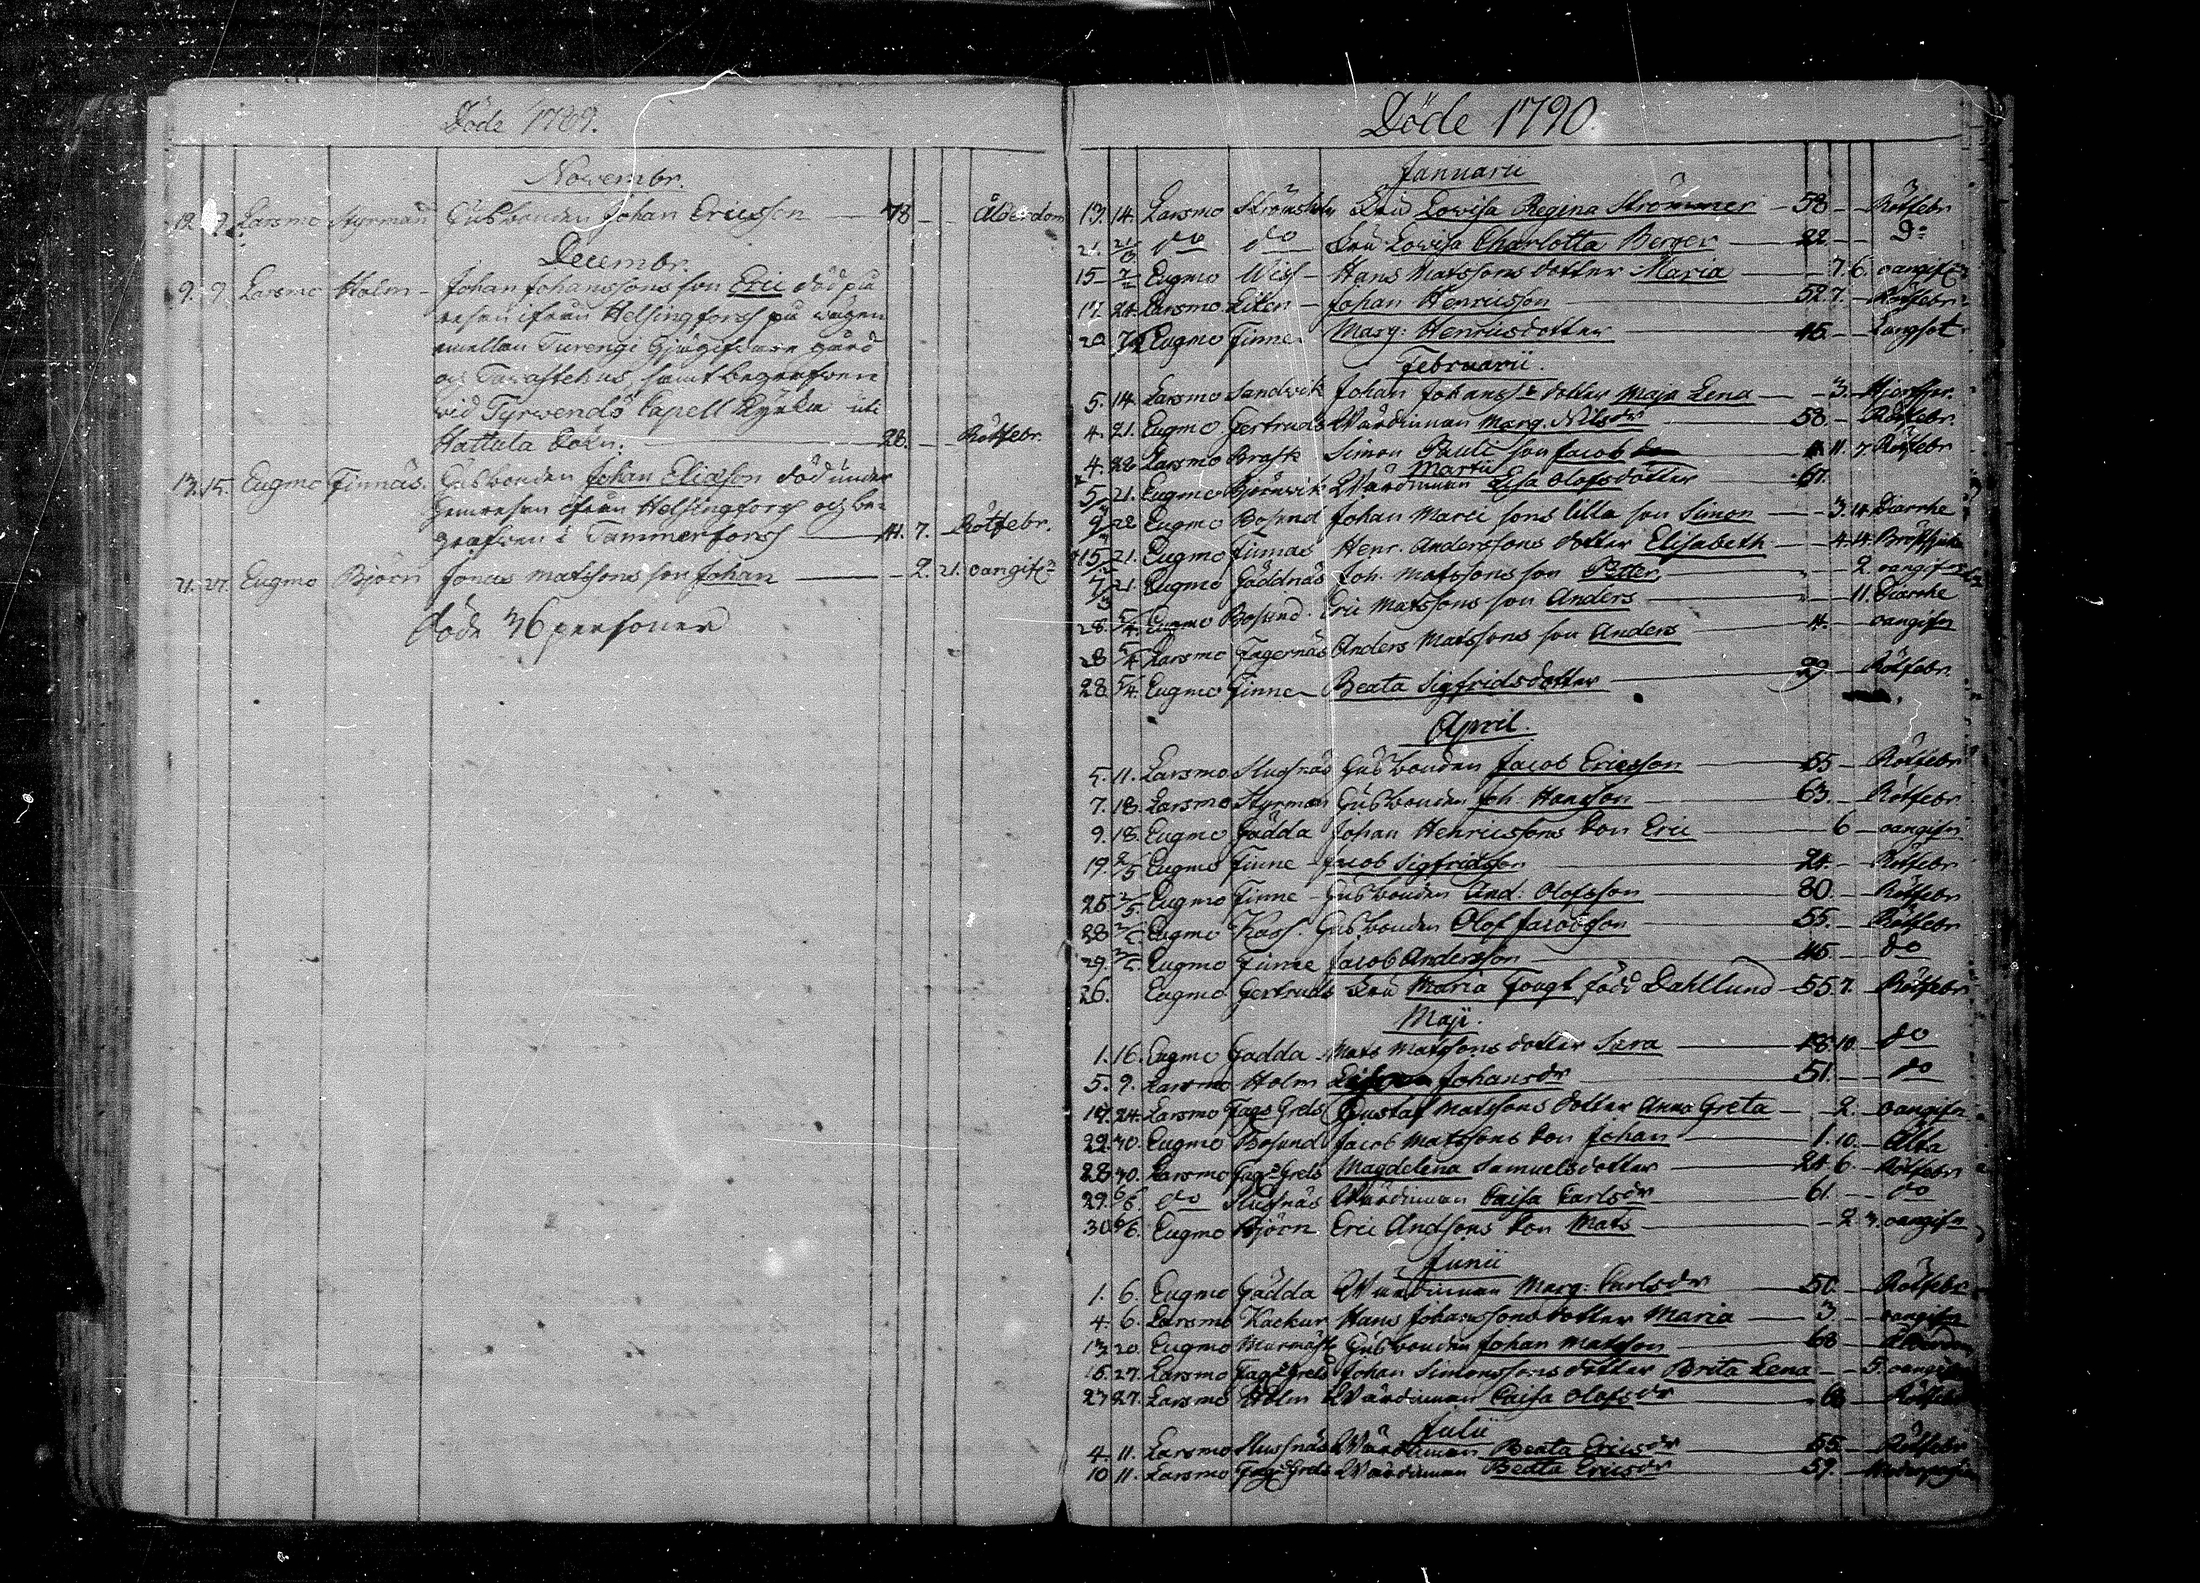 Döde 1789.
Novembr.
12. 9. Larsmo Styrman Husbonden Johan Ericsson — 78 — — Ålderdom
Decembr.
9. 9. Larsmo Holm — Johan Johanssons son Eric död på
resan ifrån Helsingfors på wägen
emellan Turengi Gjästgifware gård
och Tavastehus, samt begrafwen
wid Tyrwendö Capell Kyrka uti
Hattula Sokn. — 28. — Rötfebr.
13. 15. Eugmo Finnäs. Husbonden Johan Eliasson död under
hemresan ifrån Helsingfors och be-
grafwen i Tammerfors — 41. 7. — Rötfebr.
21. 27. Eugmo Björn Jonas Matssons son Johan — — 2. 21. oangifn
Döde 36 personer
Döde 1790.
Januarii
13. 14. Larsmo Fru Lovisa Regina Strömmer — 58 — — Rötfebr
21. 21/3 do do — Fru Lovisa Charlotta Berger — 22 — — Do
15 — Eugmo Wist — Hans Matssons dotter Maria — — 7. 6. oangifn
17. 24. Larsmo Liten — Johan Henricsson — 52. 7. — Rötfebr
20. 7/2 Eugmo Finne — Marg: Henricsdotter — 45. — Langsot
Februarii.
5. 14. Larsmo Sandwik Johan Johanss:s dotter Maja Lena — — 3.
4. 21. Eugmo Gertruds Wärdinnan Marg. Nilsdr — 58. — Rötfebr.
4. 28 Larsmo Brask Simon Pauli son Jacob — 11. 7 Rötfebr
Martii
5 21. Eugmo Björnwik Wärdinnan Lisa Olofsdotter — 67.
9 28 Eugmo Bosund Johan Marci sons lilla son Simon — — 3. 14. Diarrhe
15 21. Eugmo Finnas Henr. Anderssons dotter Elisabeth — — 4. 14. Bröstsjuka
7/3 21. Eugmo Gäddnäs Joh. Matssons son Petter — 2. oangifn
28. 5/4. Eugmo Bosund. Eric Matssons son Anders — 11. Diarrhe
28 5/4 Larsmo Fagernäs Anders Matssons son Anders — 4. — oangifn
28. 5/4. Eugmo Finne — Beata Sigfridsdotter — 29. — Rötfebr.
April.
5. 11. Larsmo Slussnäs Husbonden Jacob Ericsson — 55 — Rötfebr
7. 18. Larsmo Styrman Husbonden Joh: Hansson — 63. — Rötfebr
9. 18. Eugmo Gädda Johan Henricssons Son Eric — 6 — oangifn
19. 2/5 Eugmo Finne — Jacob Sigfridsson — 24. — Rötfebr
25. 2/5. Eugmo Finne — Husbonden And. Olofsson — 80. — Rötfebr
28 2/5. Eugmo Kass. Husbonden Olof Jacobsson — 55. — Rötfebr
29. 2/5. Eugmo Finne Jacob Andersson — 45. — do
26. Eugmo Gertruds Fru Maria Fougt född Dahllund — 55. 7. — Rötfebr
Maji.
1. 16. Eugmo Gadda — Mats Matssons dotter Sara — 18. 10. — do
5. 9. Larsmo Holm Johansdr — 51. — do
17. 24. Larsmo Fag: Grels Gustaf Matssons dotter Anna Greta — 2. — oangifn
22. 30. Eugmo Bosund Jacob Matssons Son Johan — 1. 10. —
28 30. Larsmo Fag: Grels Magdelena Samuelsdotter — 24. 6. Rötfebr
29. 6/6. do Slussnäs Wärdinnan Caisa Carlsdr — 61. — do
30. 6/6. Eugmo Björn Eric Andssons Son Mats — — 2. 3. oangifn
Junii
1. 6. Eugmo Gädda Wärdinnan Marg: Carlsdr — 50. — Rötfebr
4. 6. Larsmo Kackur Hans Johanssons dotter Maria — 3. — oangifn
13. 20. Eugmo Murmäst Husbonden Johan Matsson — 68 —
16. 27. Larsmo Fag: Grels Johan Simonssons dotter Brita Lena — — 5. oangifn
27 27. Larsmo Holm Wärdinnan Caisa Olofsdr — — Rötfebr
Julii
4. 11. Larsmo Slussnäs Wärdinnan Beata Ericsdr — 55. — Rötfebr
10 11. Larsmo Fag: Grels Wärdinnan Beata Ericsdr — 59. —